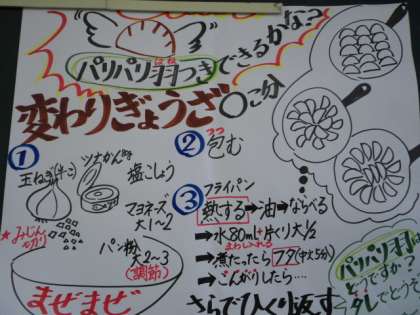 パリパリ羽つきできるかな?
はね
変わりぎょうざ○こ分
①
玉ねぎ(半こ)
ツナかん
塩こしょう
★みじん切り
マヨネーズ
大1~2
パン粉
大2~3
(調節)
まぜまぜ
②包む
つつ
③フライパン
熱する→油→ならべる
→水80ml+片くり大1/2
まわし入れる
→煮たったらフタ(中火5分)
→こんがりしたら…
さらでひっくり返す
パリパリ羽は
どうですか?
タレでどうぞ